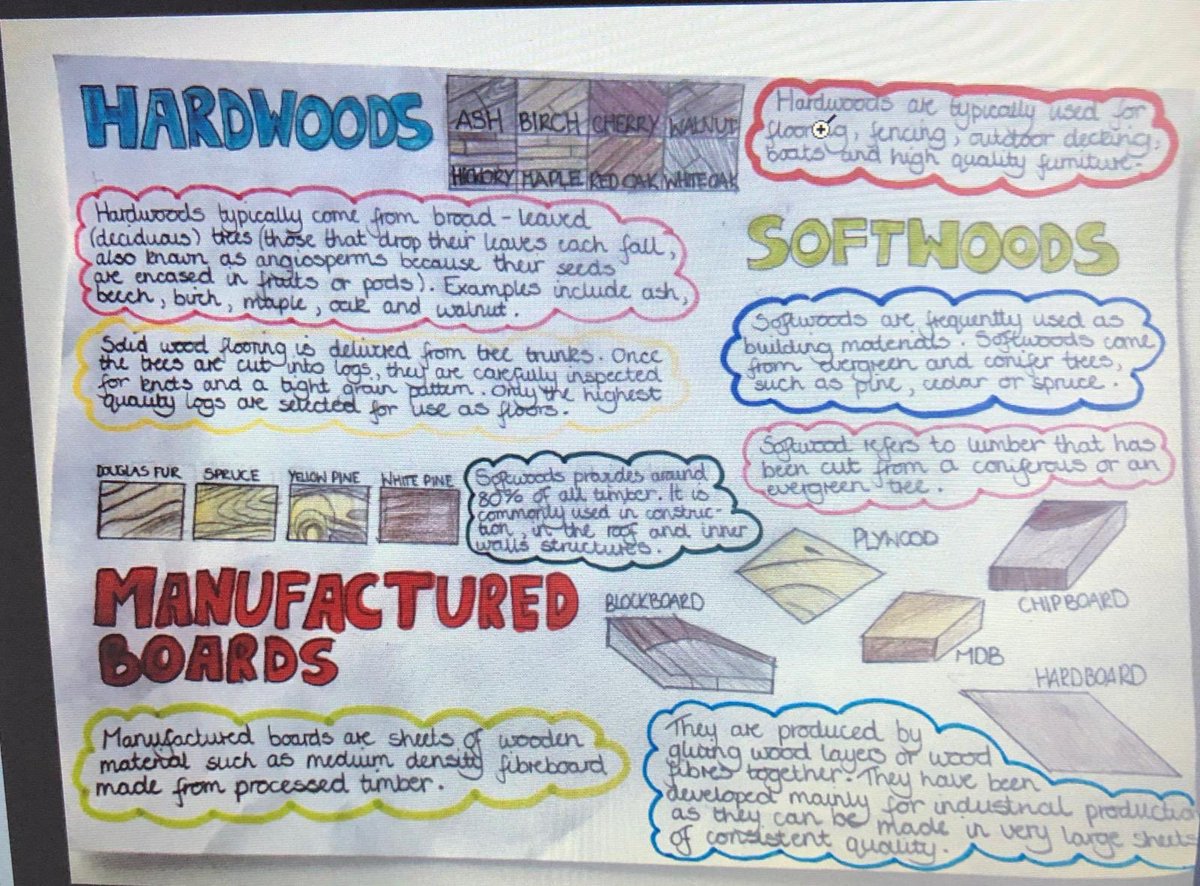 HARDWOODS
ASH BIRCH CHERRY WALNUT
HICKORY MAPLE RED OAK WHITE OAK
Hardwoods are typically used for
flooring, fencing, outdoor decking,
boats and high quality furniture.
Hardwoods typically come from broad-leaved
(deciduous) trees (those that drop their leaves each fall,
also known as angiosperms because their seeds
are encased in fruits or pods). Examples include ash,
beech, birch, maple, oak and walnut.
Solid wood flooring is delivred from tree trunks. Once
the trees are cut into logs, they are carefully inspected
for knots and a tight grain pattern. Only the highest
quality logs are selected for use as floors.
SOFTWOODS
Softwoods are frequently used as
building materials. Softwoods come
from evergreen and conifer trees,
such as pine, cedar or spruce.
Softwood refers to lumber that has
been cut from a coniferous or an
evergreen tree.
DOUGLAS FUR SPRUCE YELLOW PINE WHITE PINE
Softwoods provides around
80% of all timber. It is
commonly used in construc-
tion, in the roof and inner
walls structures.
MANUFACTURED
BOARDS
BLOCKBOARD
PLYWOOD
CHIPBOARD
MDB
HARDBOARD
Manufactured boards are sheets of wooden
material such as medium density fibreboard
made from processed timber.
They are produced by
gluing wood layers or wood
fibres together. They have been
developed mainly for industrial productio
as they can be made in very large sheets
of consistent quality.